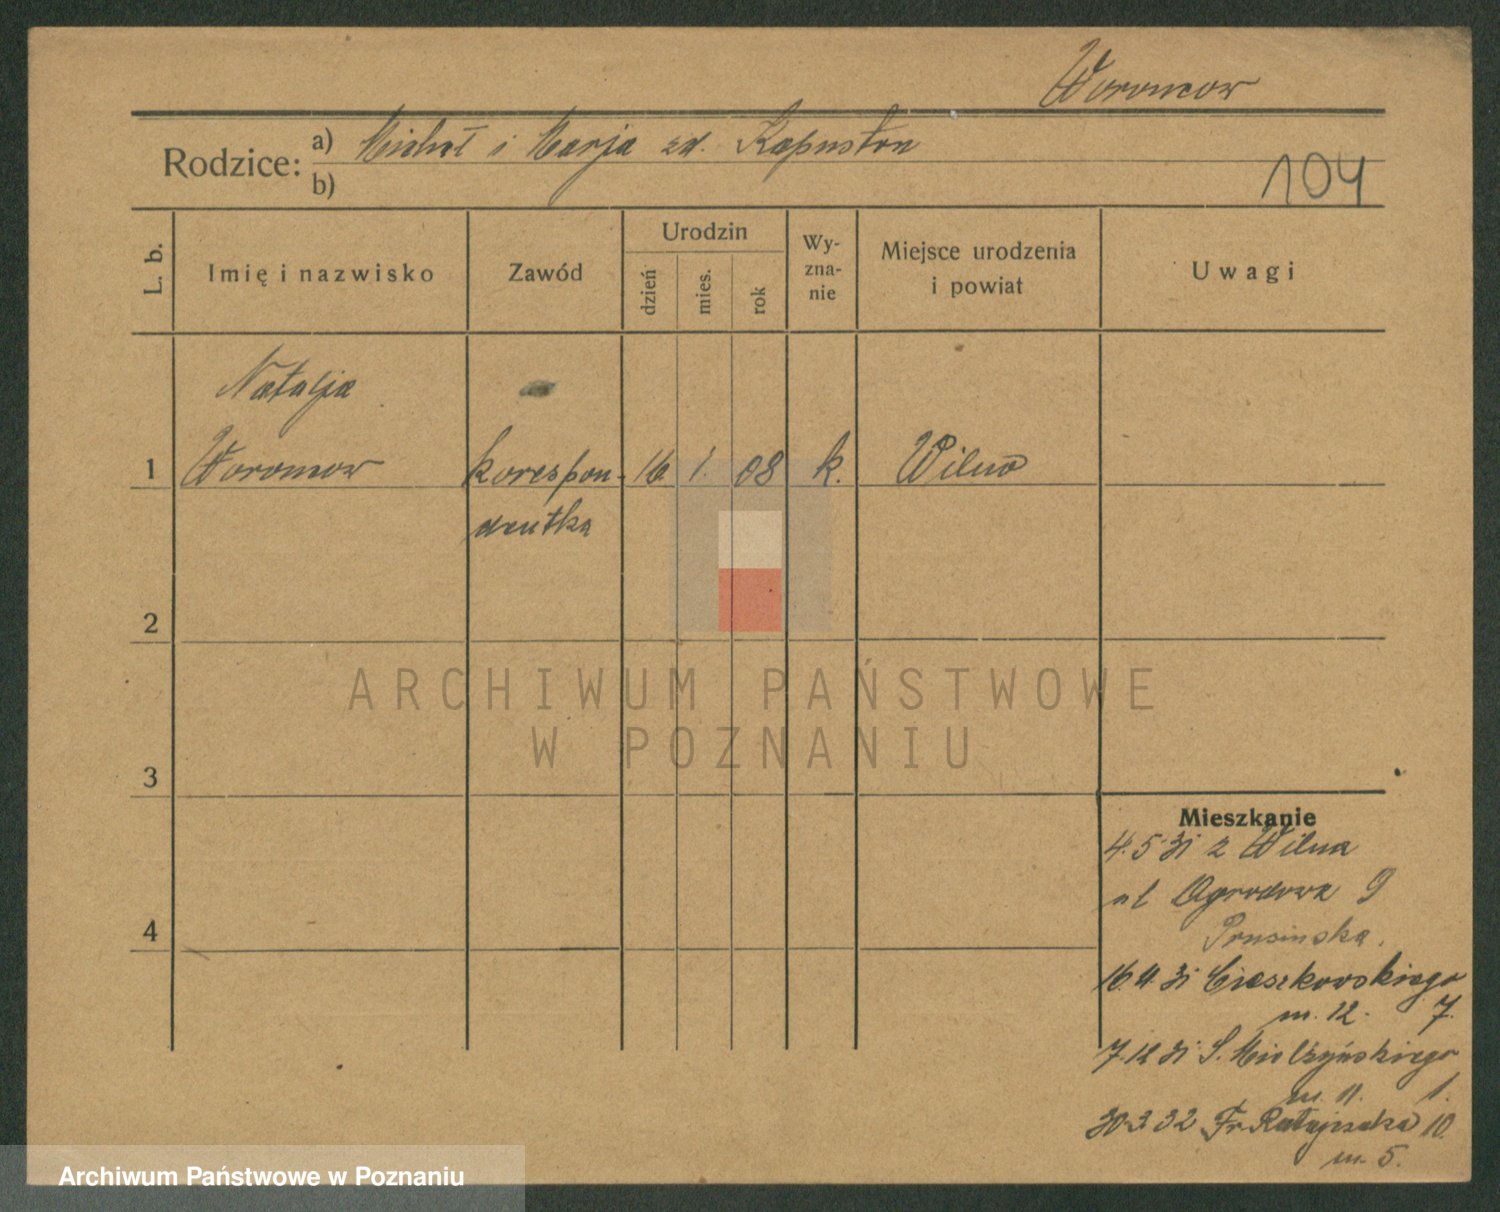 Woroncow
Rodzice: a) Michał i Marja zd. Kapuston
b)
104
L. b.
Imię i nazwisko
Zawód
Urodzin
dzień
mies.
rok
Wy-
zna-
nie
Miejsce urodzenia
i powiat
Uwagi
Natalja
1 Woroncow korespon- 16 1. 08 k. Wilno
dentka
2
3
4
ARCHIWUM PAŃSTWOWE
W POZNANIU
Mieszkanie
4.5 31 z Wilna
ul Ogrodowa 9
Prusinska.
16.11 31 Cieszkowskiego
m. 12. 7.
7.12 31 S. Mielżyńskiego
m. 11. 1.
30.3 32 Fr. Ratajczaka 10.
m. 5.
Archiwum Państwowe w Poznaniu